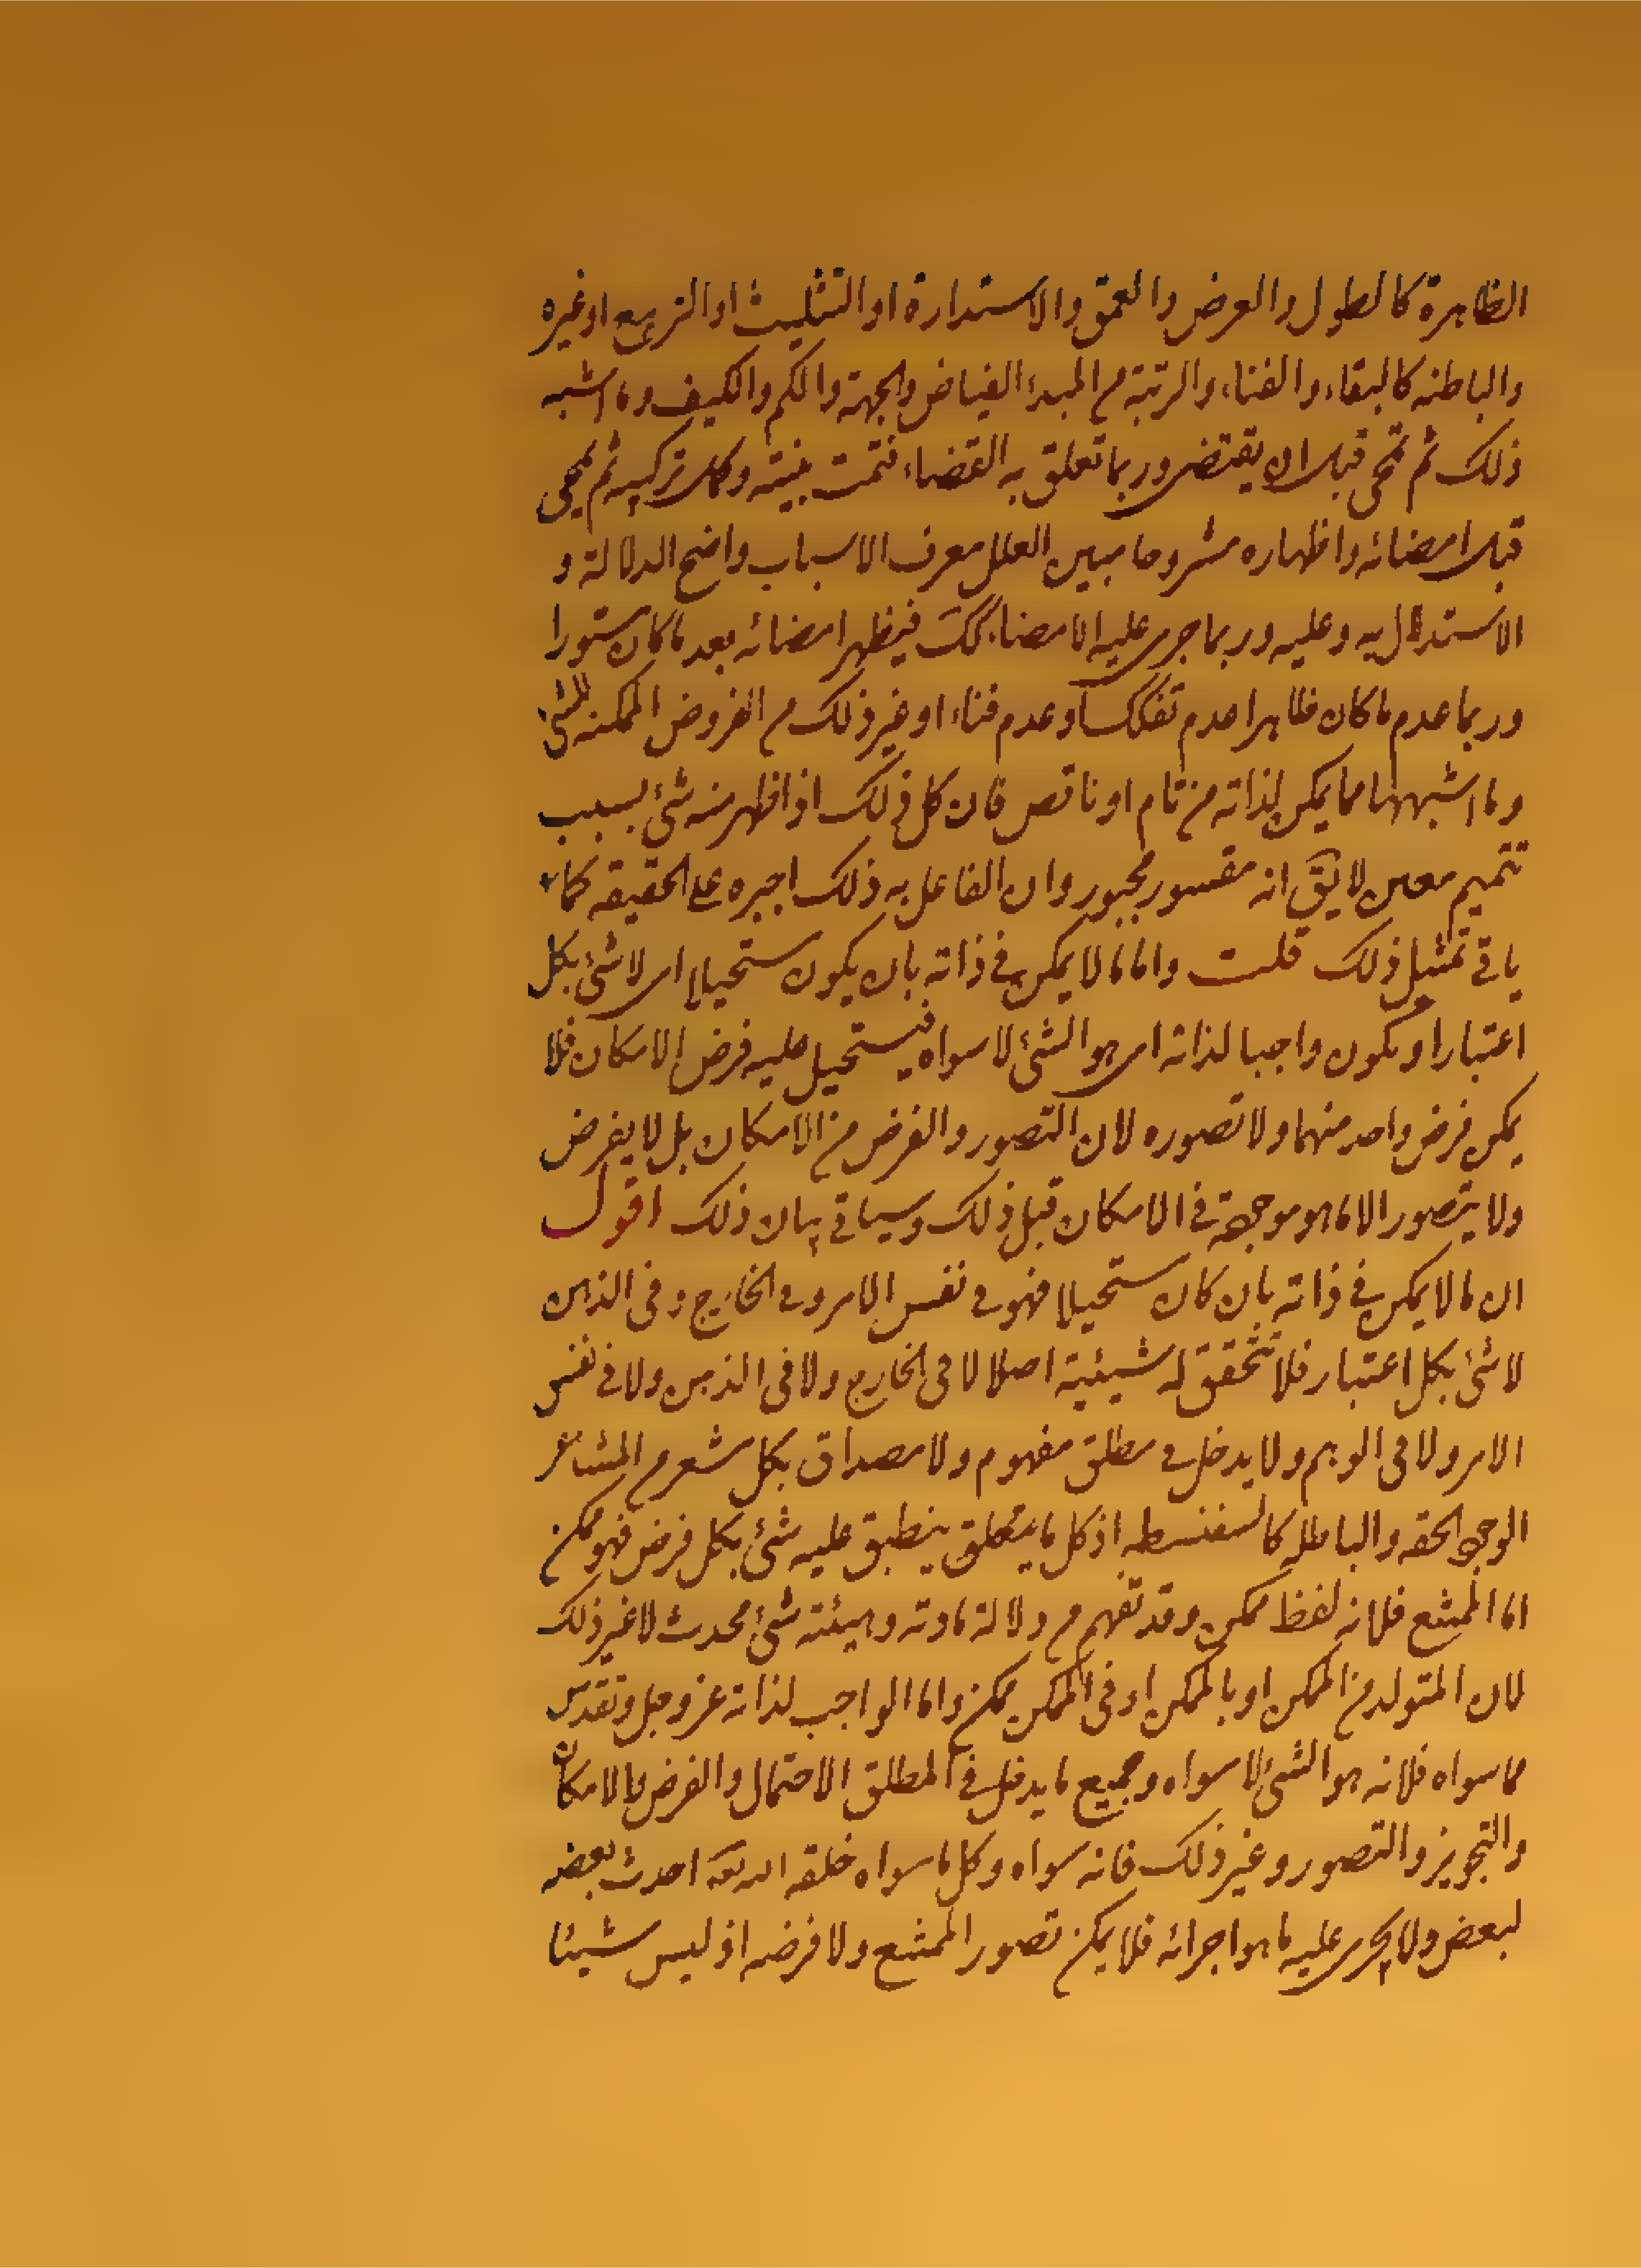 الظاهرة كالطول والعرض والعمق والاستدارة او التثليث او التربيع او غيره
والباطنه كالبقاء والفناء والرتبة من المبدء الفياض والجهة والكم والكيف وما اشبه
ذلك ثم تمحى قبل ان يقتضى وربما تعلق به القضاء فتمت بنيته وكمل تركيبه ثم يمحى
قبل امضائه واظهاره مشروحا مبين العلل معرف الاسباب واضح الدلالة و
الاستدلال به وعليه وربما جرى عليه الامضاء كك فيظهر امضائه بعد ما كان مستورا
وربما عدم ما كان ظاهرا عدم تفكك او عدم فناء او غير ذلك من الفروض الممكنه للشئ
وما اشبهها مما يمكن لذاته من تام او ناقص فان كل ذلك اذا ظهر منه شئ بسبب
تتميم معين لا يق انه مقسور مجبور وان الفاعل به ذلك اجبره على الحقيقه كما
ياتى تمثيل ذلك قلت واما ما لا يمكن فى ذاته بان يكون مستحيلا اى لا شئ بكل
اعتبار او يكون واجبا لذاته اى هو الشئ لا سواه فيستحيل عليه فرض الامكان فلا
يمكن فرض واحد منهما ولا تصوره لان التصور والفرض من الامكان بل لا يفرض
ولا يتصور الا ما هو موجود فى الامكان قبل ذلك وسياتى بيان ذلك اقول
ان ما لا يمكن فى ذاته بان كان مستحيلا فهو فى نفس الامر وفى الخارج وفى الذهن
لا شئ بكل اعتبار فلا تتحقق له شيئية اصلا لا فى الخارج ولا فى الذهن ولا فى نفس
الامر ولا فى الوهم ولا يدخل فى مطلق مفهوم ولا مصداق بكل مشعر من المشاعر
الحقه والباطله كالسفسطه اذ كل ما يتعلق ينطبق عليه شئ بكل فرض فهو ممكن
اما الممتنع فلانه لفظ ممكن وقد تفهم من دلالة مادته وهيئته شئ محدث لا غير ذلك
لان المتولد من الممكن او بالممكن او فى الممكن ممكن واما الواجب لذاته عز وجل وتقدس
مما سواه فلانه هو الشئ لا سواه وجميع ما يدخل فى المطلق الاحتمال والفرض والامكان
والتجويز والتصور وغير ذلك فانه سواه وكل ما سواه خلقه الله احدث بعضه
لبعض ولا يجرى عليه ما هو اجرائه فلا يمكن تصور الممتنع ولا فرضه اذ ليس شيئا